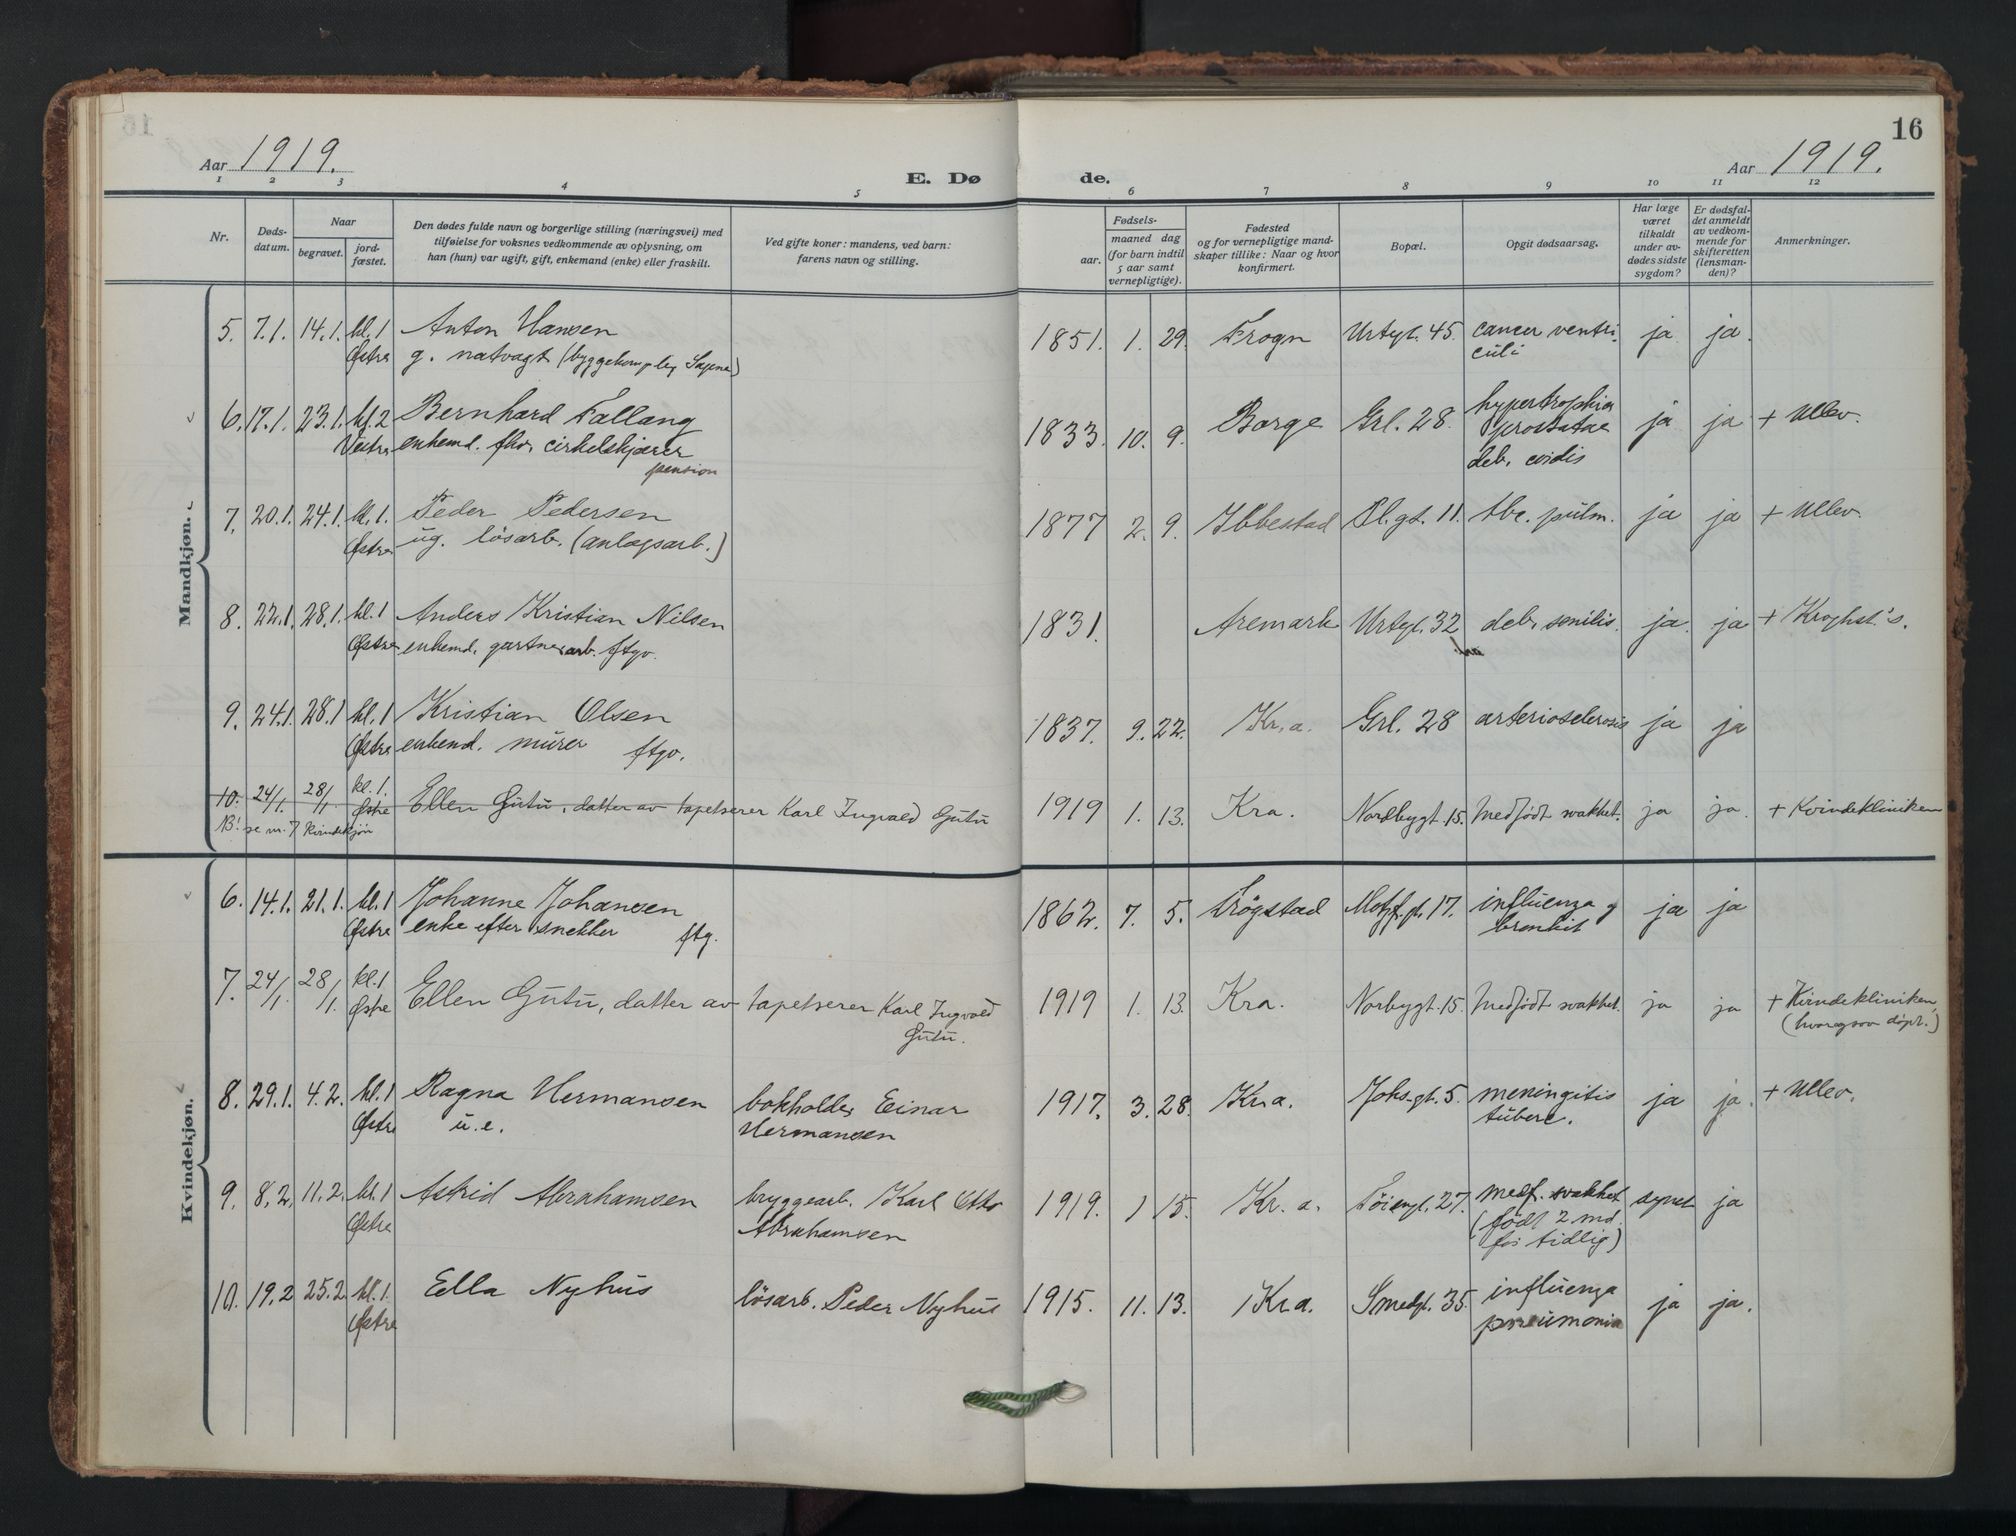 16
Aar 1919.
Aar 1919.
E. Dø de.
1 2 3 4 5 6 7 8 9 10 11 12
Nr.
Døds-
datum.
Naar
begravet.
jord-
fæstet.
Den dødes fulde navn og borgerlige stilling (næringsvei) med
tilføielse for voksnes vedkommende av oplysning, om
han (hun) var ugift, gift, enkemand (enke) eller fraskilt.
Ved gifte koner: mandens, ved barn:
farens navn og stilling.
Fødsels-
aar.
maaned dag
(for barn indtil
5 aar samt
vernepligtige).
Fødested
og for vernepligtige mand-
skaper tillike: Naar og hvor
konfirmert.
Bopæl.
Opgit dødsaarsag.
Har læge
været
tilkaldt
under av-
dødes sidste
sygdom?
Er dødsfal-
det anmeldt
av vedkom-
mende for
skifteretten
(lensman-
den)?
Anmerkninger.
Mandkjøn.
5. 7.1. 14.1. kl. 1 Anton Hansen 1851. 1. 29. Frogn Urtegt. 45. cancer ventri-
Østre g. natvagt (byggekompleks Sagene) culi ja ja.
6. 17.1. 23.1. kl. 2 Bernhard Fallang 1833. 10. 9. Borge Grl. 28 hypertrophia ja ja + Ullev.
Vestre enkemd. fhv. cirkelskjærer prostatae
pension deb. cordis
7. 20.1. 24.1. kl. 1. Peder Pedersen 1877 2. 9. Ibbestad Pl.gt. 11. tbc. pulm. ja ja + Ullev.
Østre ug. løsarb. (anlagsarb.)
8. 22.1. 28.1. kl. 1 Anders Kristian Nilsen 1831. Aremark Urtegt. 32 deb. senilis. ja. ja + Kroghst.'s.
Østre enkemd. gartnerarb. ftgv.
9. 24.1. 28.1 kl. 1 Kristian Olsen 1837. 9. 22. Kr.a. Grl. 28 arteriosclerosis ja ja
Østre enkemd. murer ftgv.
10. 24/1. 28/1. kl. 1. Østre Ellen Gutu, datter av tapetserer Karl Ingvald Gutu 1919 1. 13. Kra. Nordbygt. 15. Medfødt svakhet. ja ja. + Kvindekliniken
NB! se nr. 7 Kvindekjøn
Kvindekjøn.
6. 14.1. 21.1. kl. 1 Johanne Johansen 1862. 7. 5. Trøgstad Motzf.gt. 17. influenza og ja ja
Østre enke efter snekker ftg. bronkit
7. 24/1. 28/1. kl. 1 Østre Ellen Gutu, datter av tapetserer Karl Ingvald 1919 1. 13. Kra. Norbygt. 15. Medfødt svakhet. ja ja + Kvindekliniken,
Gutu. (hvor ogsaa døpt.)
8. 29.1. 4.2. kl. 1 Ragna Hermansen bokholder Einar 1917. 3. 28. Kr.a. Johs.gt. 5. meningitis ja ja. + Ullev.
Østre u.e. Hermansen tuberc.
9. 8.2. 11.2. kl. 1 Astrid Abrahamsen bryggearb. Karl Otto 1919. 1 15. Kr.a. Tøiengt. 27. medf. svakhet synet ja
Østre Abrahamsen (født 2 md.
for tidlig)
10. 19.2 25.2 kl. 1. Ella Nyhus løsarb. Peder Nyhus 1915. 11. 13. Kr.a. Smedgt. 35. influenza ja ja.
Østre pneumonia